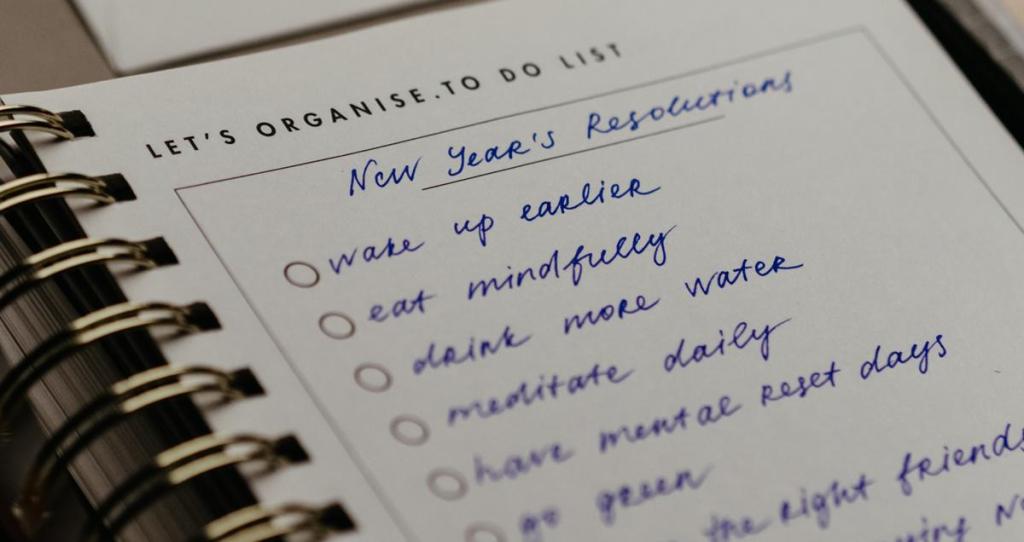 LET'S ORGANISE.TO DO LIST
New Year's Resolutions
wake up earlier
eat mindfully
drink more water
meditate daily
have mental reset days
go green
the right friends